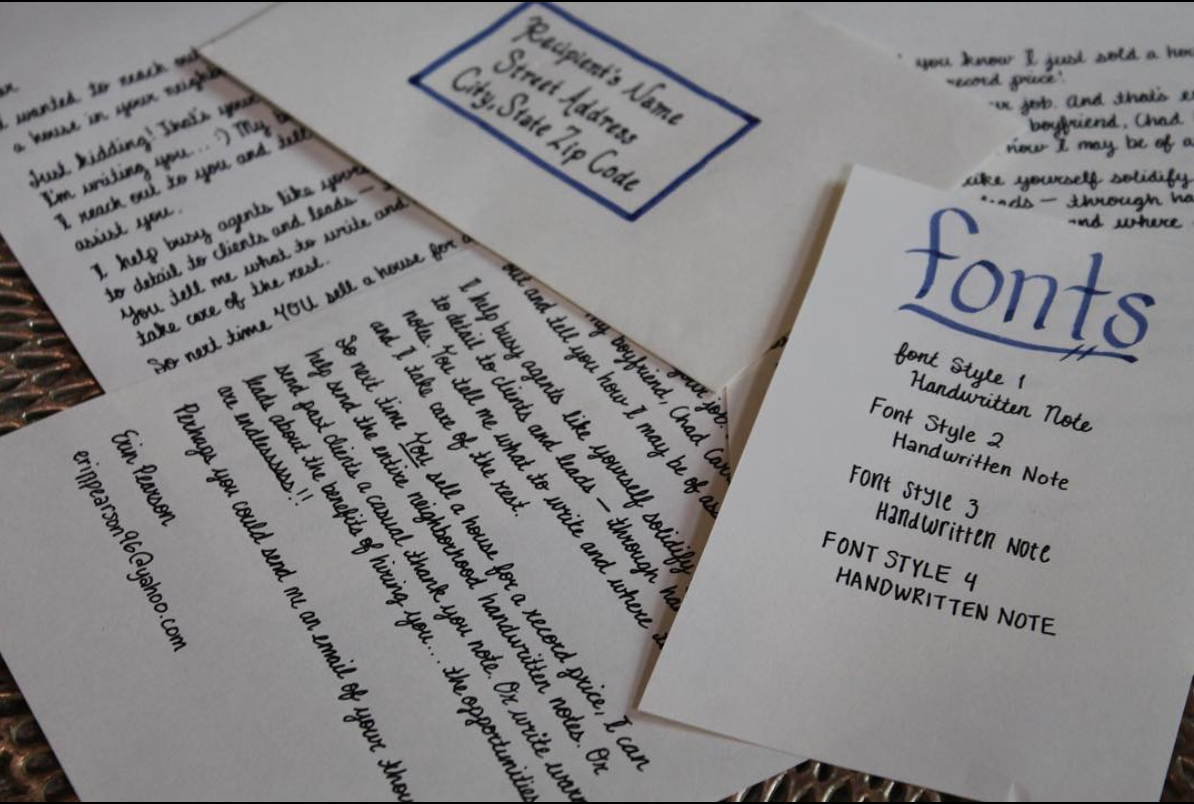 I wanted to reach out
a house in your neighb
Just kidding! That's your
I'm writing you... :) My b
I reach out to you and tell
assist you.
I help busy agents like yours
to detail to clients and leads –
You tell me what to write and
take care of the rest.
So next time YOU sell a house for a
Recipient's Name
Street Address
City, State Zip Code
you know I just sold a hou
record price!
ur job. And that's e
boyfriend, Chad
how I may be of a
like yourself solidify
ads – through ha
and where
fonts
font Style 1
Handwritten Note
Font Style 2
Handwritten Note
FONT STYLE 3
HANDWRITTEN NOTE
FONT STYLE 4
HANDWRITTEN NOTE
your job.
my boyfriend, Chad Carr
out and tell you how I may be of ass
I help busy agents like yourself solidify
to detail to clients and leads – through ha
notes. You tell me what to write and where
and I take care of the rest.
So next time You sell a house for a record price, I can
help send the entire neighborhood handwritten notes. Or
send past clients a casual thank you note. Or write warm
leads about the benefits of hiring you... the opportunities
are endlesssss!!
Perhaps you could send me an email of your thou
Erin Pearson
erinpearson96@yahoo.com